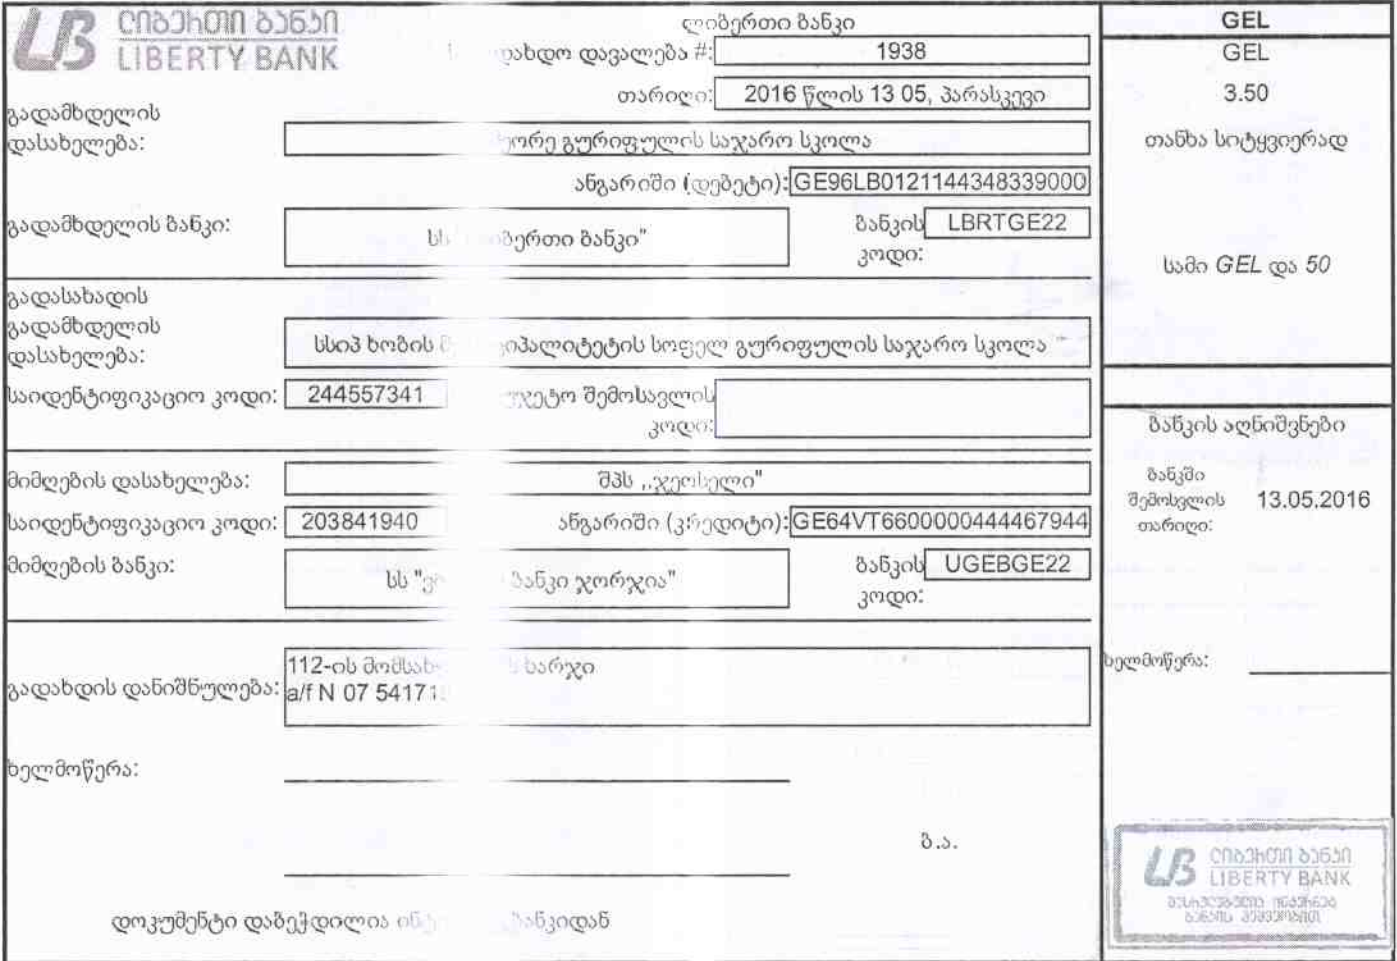 ლიბერთი ბანკი
LIBERTY BANK
ლიბერთი ბანკი
დავალება #: 1938
თარიღი: 2016 წლის 13 05, პარასკევი
გადამხდელის
დასახელება: გურიფულის საჯარო სკოლა
ანგარიში (დებეტი): GE96LB0121144348339000
გადამხდელის ბანკი: სს ბანკი"
ბანკის კოდი: LBRTGE22
გადასახადის
გადამხდელის
დასახელება: სსიპ ხობის სოფელ გურიფულის საჯარო სკოლა
საიდენტიფიკაციო კოდი: 244557341
შემოსავლის
კოდი:
მიმღების დასახელება: შპს ,,ჯეოსელი"
საიდენტიფიკაციო კოდი: 203841940
ანგარიში (კრედიტი): GE64VT6600000444467944
მიმღების ბანკი: სს ბანკი ჯორჯია"
ბანკის კოდი: UGEBGE22
გადახდის დანიშნულება: 112-ის ხარჯი
a/f N 07
ხელმოწერა:
ბ.ა.
დოკუმენტი დაბეჭდილია
GEL
GEL
3.50
თანხა სიტყვიერად
სამი GEL და 50
ბანკის აღნიშვნები
ბანკში
შემოსვლის
თარიღი: 13.05.2016
ხელმოწერა:
ლიბერთი ბანკი
LIBERTY BANK